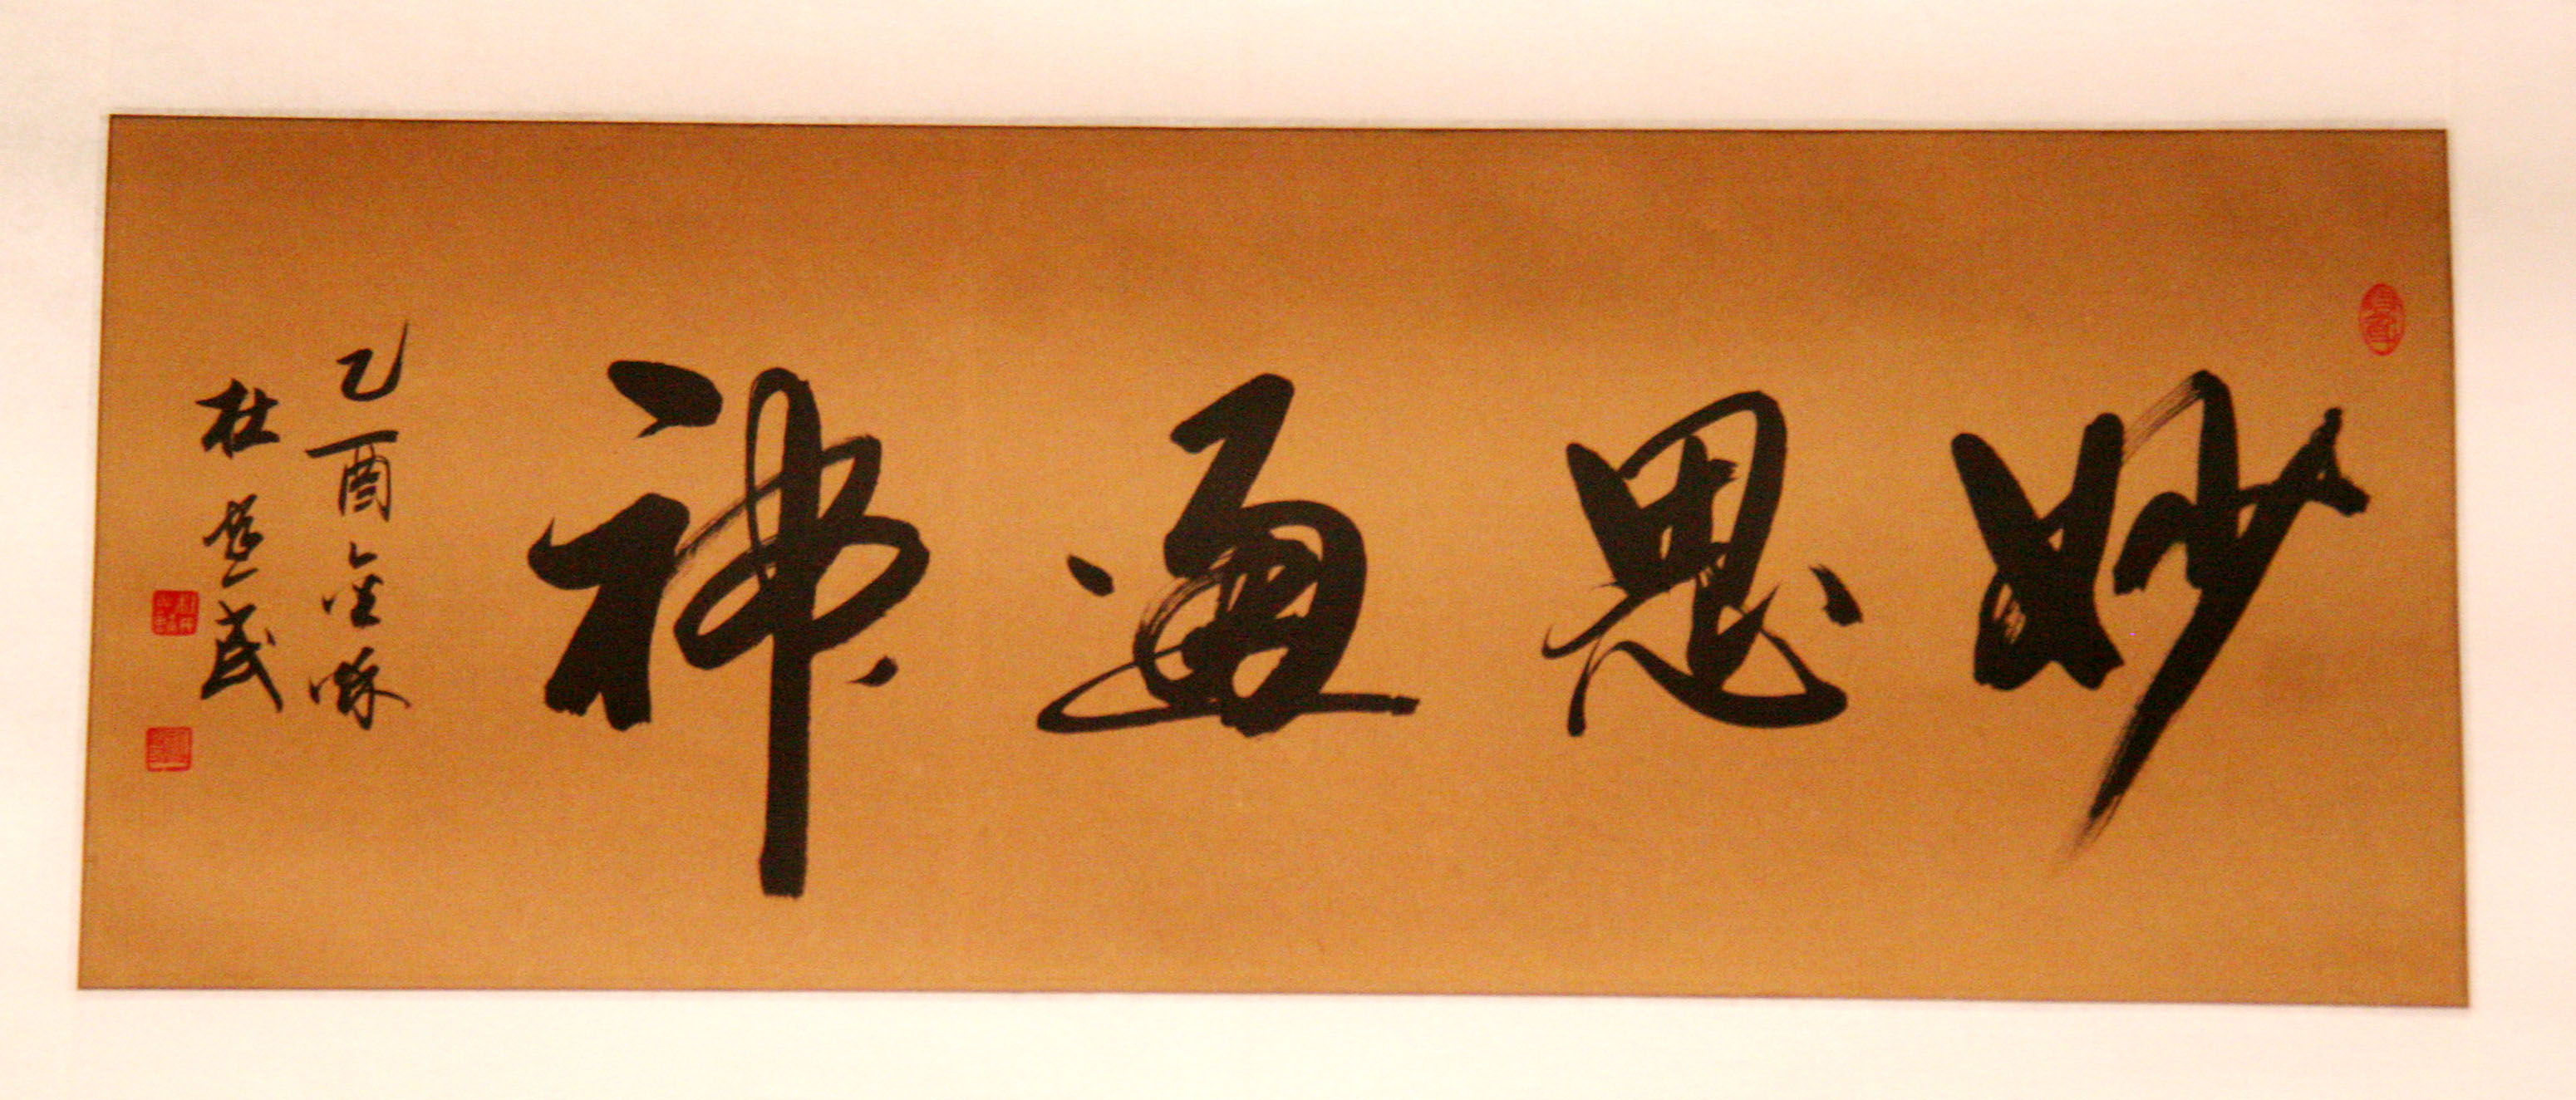 妙思通神
乙酉金秋
杜